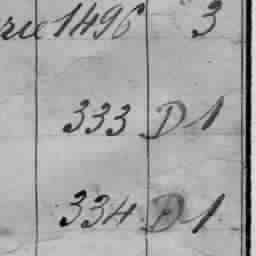 rie 1496 3
333 D 1
334 D 1